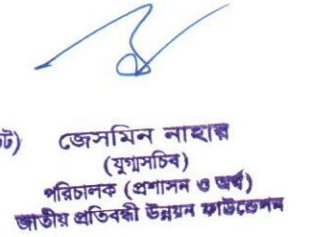 টে) জেসমিন নাহার
(যুগ্মসচিব)
পরিচালক (প্রশাসন ও অর্থ)
জাতীয় প্রতিবন্ধী উন্নয়ন ফাউন্ডেশন